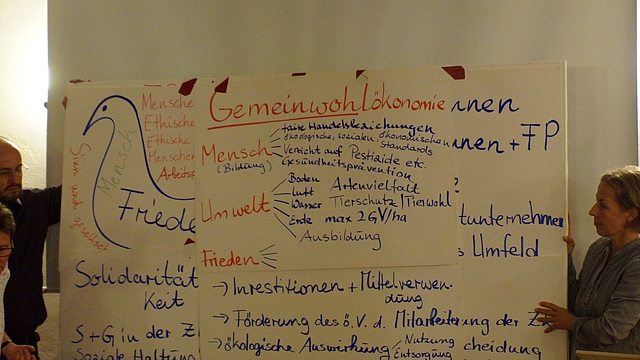 Gemeinwohlökonomie
Mensch
(Bildung)
faire Handelsbeziehungen
ökologische, sozialen, ökonomischen
Standards
Verzicht auf Pestizide etc.
Gesundheitsprävention
Umwelt
Boden
Luft
Wasser
Erde
Artenvielfalt
Tierschutz/Tierwohl
max 2GV/ha
Ausbildung
Frieden
→ Investitionen + Mittelverwen-
dung
→ Förderung des ö.V. d. Mitarbeiter
→ ökologische Auswirkung
Nutzung
Entsorgung
Mensche
Ethische
Ethische
Mensche
Arbeitsp
Mensch
Friede
Solidarität
Keit
S+G in der Z
Soziale Haltung
nnen
nnen + FP
?
tunternehmen
s Umfeld
ng der Z
cheidung